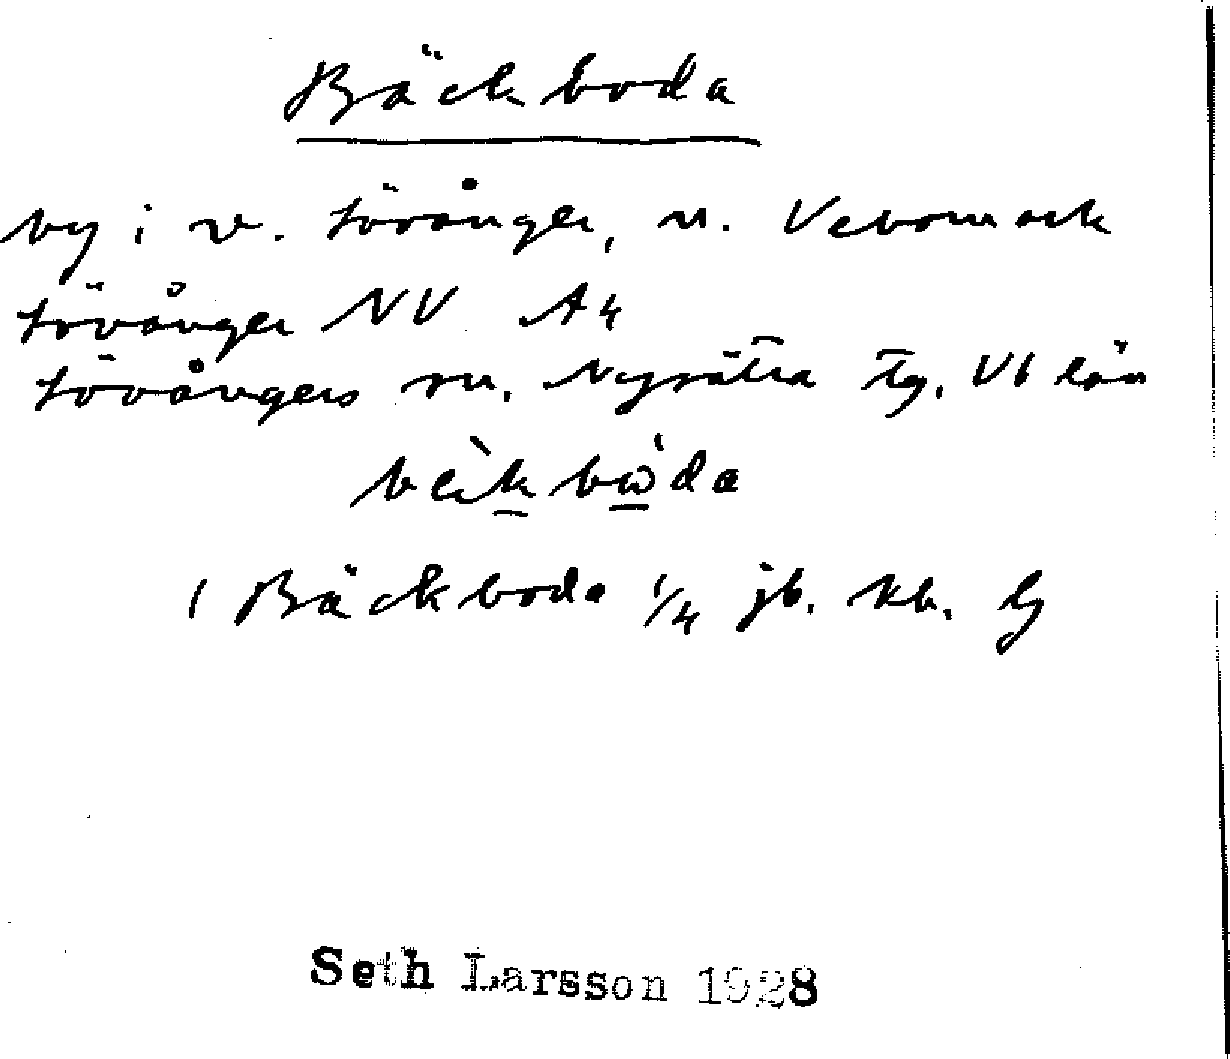 Bäckboda
by i v. Lövånger, n. Vebomark
Lövånger NV A4
Lövångers sn. Nysätra tg. Vb län
1 Bäckboda 1/4 jb. kb.
Seth Larsson 1928